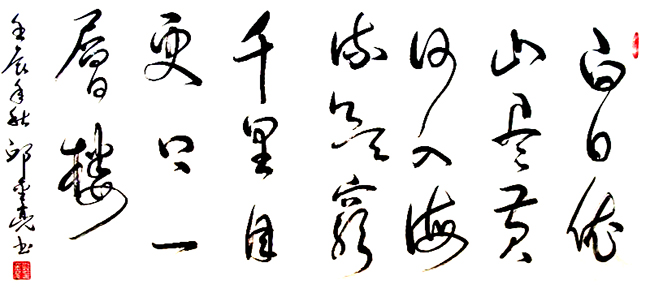 白日依
山尽黄
河入海
流欲窮
千里目
更上一
層楼
壬辰年秋 邱亮书